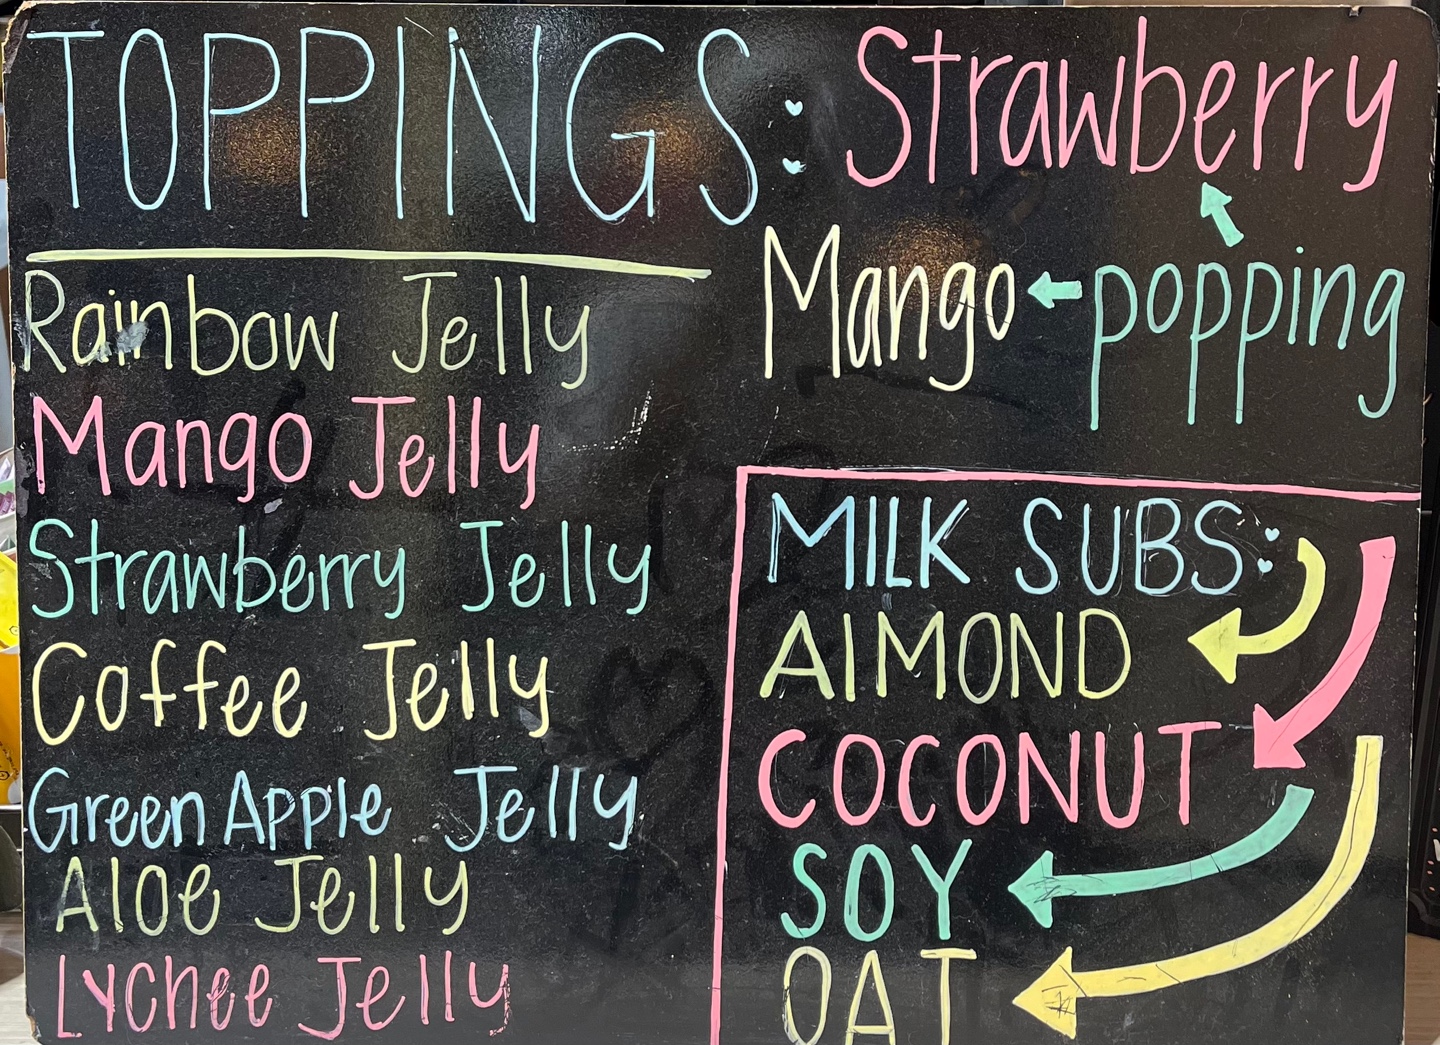 TOPPINGS:
Rainbow Jelly
Mango Jelly
Strawberry Jelly
Coffee Jelly
Green Apple Jelly
Aloe Jelly
Lychee Jelly
Strawberry
Mango popping
MILK SUBS:
AlMOND
COCONUT
SOY
OAT